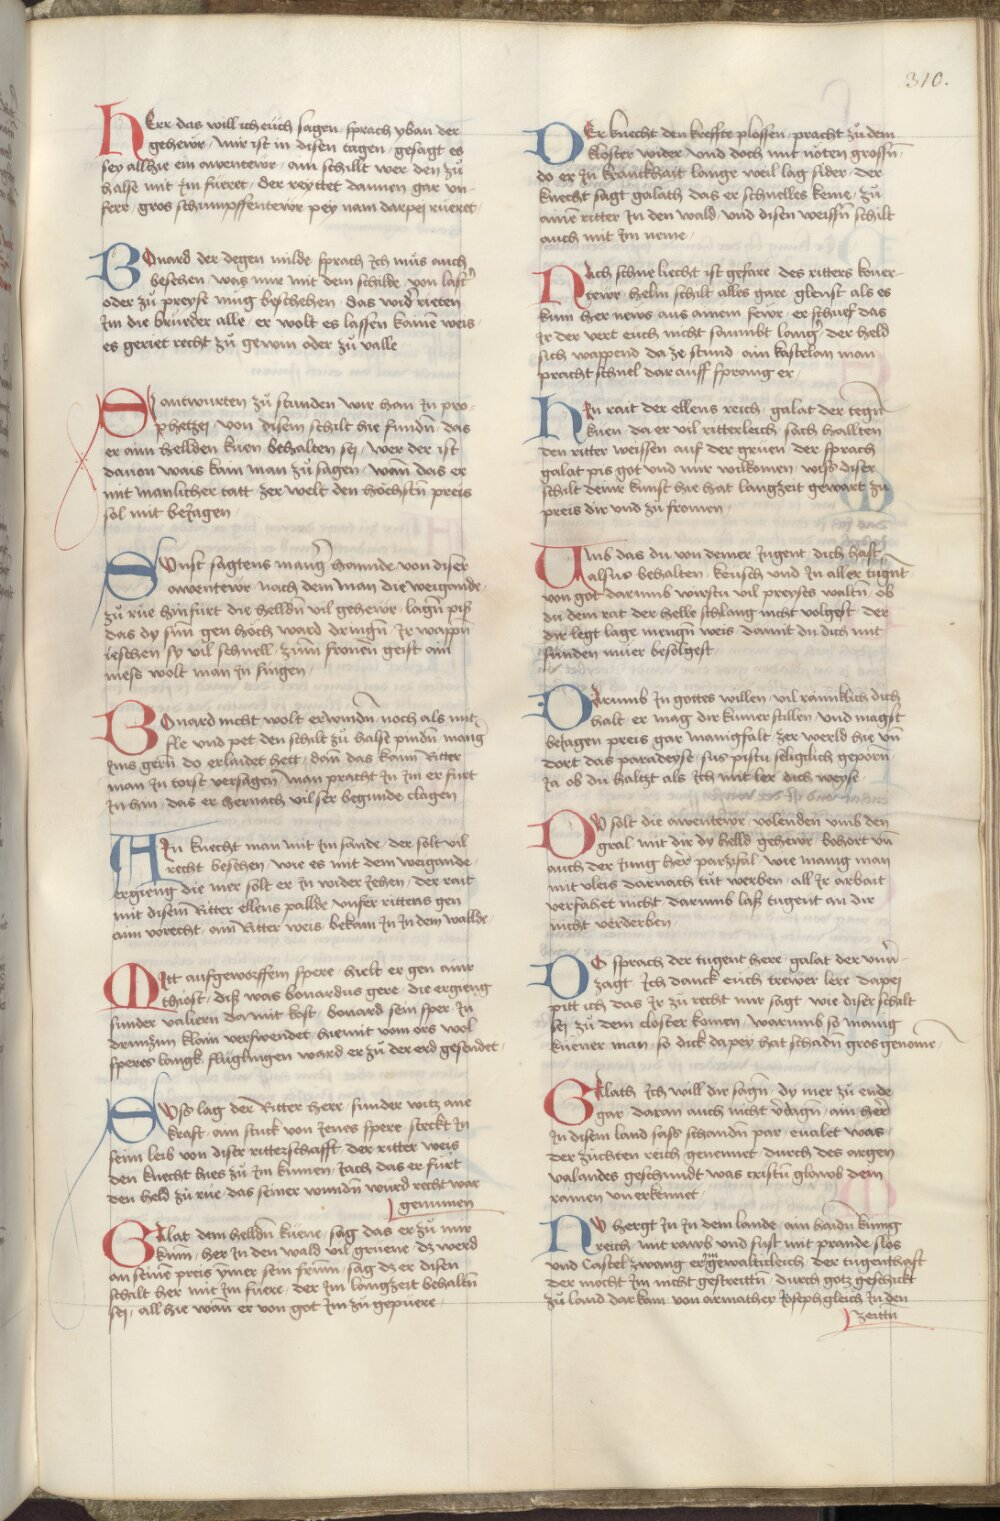 310.
HErr das will ich euch sagen / sprach yban der
gehewr / mir ist in disen tagen / gesagt es
sey allhie ein awentewr / am schillt wer den zů
halse mit Im füeret / der reyttet dannen gar vn-
ferr / gros schumpffentewr pey nam darpej rüeret /
BOnard der degen milde sprach Ich můs auch
beschen / was mir mit dem schilde / von last
oder zů preyse mug beschehen / das wid rieten
Im die brüeder alle / er wolt es lassen kainē weis /
es geriet recht zů gewin oder zů valle
SI antwurten zů stunden wir han In pro-
phetzej / von disem schilt hie fundn̄ / das
er aim hellden kuen behalten sej / wer der ist
dauon wais kain man zů sagen / wan das er
mit manlicher tatt / zer welt den höchstn̄ preis
sol mit beJagen /
SOnst sagtens mang stunde / von diser
awentewr / nach dem man die weigande /
zů rüe hinfürt die helldn̄ vil gehewr / lagn̄ piß
das dy sūn gen höch ward dringn̄ / Ir wappn̄
ieschen sy vil schnell / zum fronen geist ain
mess wolt man In singen /
BOnard nicht wolt erwindn̄ / noch als mit
fle vnd pet den schilt zů halse pindn̄ mang
Ims gern̄ do erlaidet hett / dan̄ das kaim Ritter
man In torst versagen / man pracht In Im er fürt
In hin / das er hernach vil ser begunde clagen
AIn knecht man mit Im sande / der solt vil
recht beschen / wie es mit dem weigande /
ergieng die mer solt er In wider Jehen / der rait
mit disem Ritter ellens pallde vnser rittens gen
aim vorecht / aim Ritter weis / bekam In In dem wallde /
MItt aufgeworffem spere / hielt er gen aimr
thiost / diß was bonardus gere / die ergieng
sunder valiern da mit kost / bonard sein sper In
drumzūn klain verswendet / hiemit vom ors wol
speres langk / flüglingen ward er zů der erd gesendet /
SVss lag der Ritter herr / sunder witz ane
kraft / ain stuck von Jenes spere / steckt In
seim leib von diser ritterschafft / der ritter weis
den knecht hies zů Im kūmen / Jach das er fürt
den held zů rüe / das seiner wundn̄ wurd recht war
genumen
GAlat dem helldn̄ küene / sag das er zů mir
kum̄ / her In den wald vil gruene / dz werd
an seinē preis ym̄er sein frum̄ / sag dz er disen
schilt her mit Im füere / der Im langzeit behaltn̄
sej / all hie wan̄ er von got Im zů gepuere /
DEr knecht den kreffte plossen / pracht zů dem
kloster wider / vnd doch mit nöten grossn̄ /
do er In kranckhait lange weil lag sider / der
knecht sagt galath das er schnelles keme / zů
ainē ritter In den wald / vnd disen weissn̄ schilt
auch mit Im neme /
NAch schne liecht ist gefare / des ritters kouer-
tewr / helm schilt alles gare / glenst als es
kūm her news aus ainem fewr / er schuef das
Ir der vert euch nicht saumbt lang / der held
sich wappend da ze stund / ain kastelan man
pracht schnel dar auff sprang er /
HIn rait der ellens reich / galat der tegn̄
kuen / da er vil ritterleich / sach hallten
den ritter weissen auf der gruen / der sprach
galat pis got vnd mir wilkomen / wiss diser
schilt deinr kunst hie hat langzeit gewart zu
preis dir vnd zů fromen /
VMb das du von deiner Jugent / dich hast
alsus behalten / keusch vnd In aller tugn̄t
von got darumb wirstu vil preyses waltn̄ / ob
du dem rat der helle schlang nicht volgest / der
dir legt lage mengn̄ weis / damit du dich mit
sünden nūer besölgest
DArumb In gottes willen / vil rainiklich dich
halt / er mag dir kumer stillen / vnd magst
beJagen preis gar manigfalt / zer werld hie vn̄
dort das paradeyse / sus pistu seliglich geporn̄ /
Ja ob du haltzt als Ich mit ler dich weyse /
DV solt die awentewr / volenden vmb den
gral / mit dir dy helld gehewr / bohort vn̄
auch der Jung her parzifal / wie manig man
mit vleis darnach tůt werben / all Ir arbait
verfahet nicht darumb laß tugent an dir
nicht verderben
DO sprach der tugent here / galat der vnu̇-
zagt / Ich danck euch trewer lere / dapej
pitt ich das Ir zů recht mir sagt / wie diser schilt
sej zů dem closter komen / warumb so manig
küener man / so dick dapey hat schadn̄ gros genom̄e /
GAlath Ich will dir sagn̄ / dy mer zů ende
gar / daran auch nicht v̇dagn̄ / ain her
In disem land sass schandn̄ par / eualet was /
der züchten reich genennet / durch des argen
valandes geschundt was cristn̄ glawb dem
ramen vnerkennet /
NV hergt In In dem lande / ain haidn̄ künig
reich / mit rawb vnd sust mit prande / slos
vnd Castel zwang er im gewaltigleich / der tugenthaft
der mocht Im nicht gestreittn̄ / durch gotz geschickt
zů land dar kam / von armathey Joseph gleich In den
zeittn̄